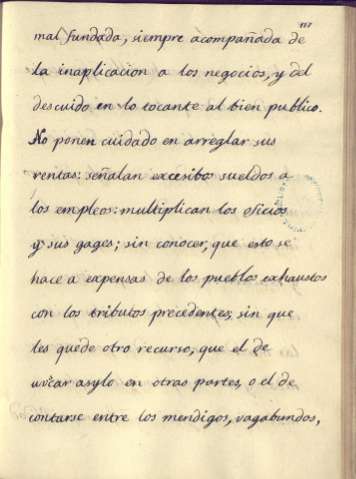 117
mal fundada, siempre acompañada de
la inaplicacion a los negocios, y del
descuido en lo tocante al bien publico.
No ponen cuidado en arreglar sus
rentas: señalan excesibos sueldos a
los empleos: multiplican los oficios
y sus gages; sin conocer, que esto se
hace a expensas de los pueblos exhaustos
con los tributos precedentes, sin que
les quede otro recurso, que el de
uvcar asylo en otras partes, o el de
contarse entre los mendigos, vagabundos,